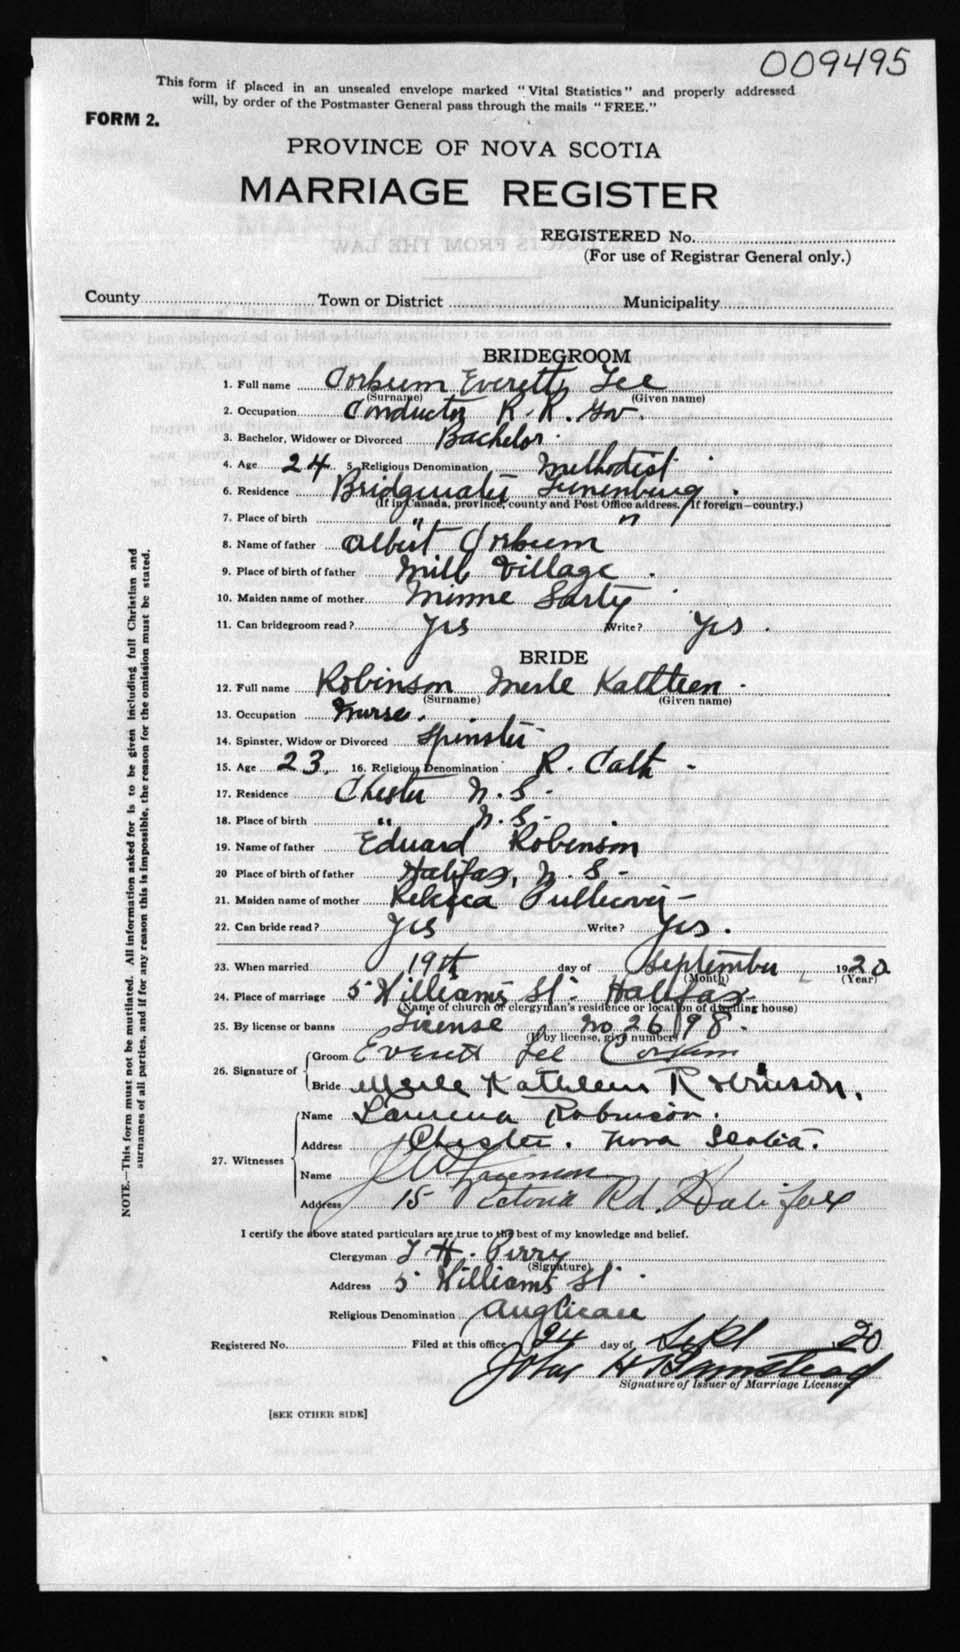 009495
This form if placed in an unsealed envelope marked "Vital Statistics" and properly addressed
will, by order of the Postmaster General pass through the mails "FREE."
FORM 2.
PROVINCE OF NOVA SCOTIA
MARRIAGE REGISTER
REGISTERED No.
(For use of Registrar General only.)
County Town or District Municipality
BRIDEGROOM
1. Full name Corkum Everett Lee
(Surname) (Given name)
2. Occupation Conductor R. R. Gov.
3. Bachelor, Widower or Divorced Bachelor.
4. Age 24 5. Religious Denomination Methodist
6. Residence Bridgewater Lunenburg.
(If in Canada, province, county and Post Office address. If foreign—country.)
7. Place of birth " "
8. Name of father Albert Corkum
9. Place of birth of father Mill Village.
10. Maiden name of mother Minne Sarty
11. Can bridegroom read? Yes Write? Yes.
BRIDE
12. Full name Robinson Merle Kathleen -
(Surname) (Given name)
13. Occupation Nurse.
14. Spinster, Widow or Divorced Spinster
15. Age 23, 16. Religious Denomination R. Cath -
17. Residence Chester N. S -
18. Place of birth " N. S -
19. Name of father Eduard Robinson
20 Place of birth of father Halifax, N. S -
21. Maiden name of mother Rebecca Pullicover -
22. Can bride read? Yes Write? Yes.
23. When married 19th day of September 1920
(Month) (Year)
24. Place of marriage 5 Williams St. Halifax -
(Name of church or clergyman's residence or location of dwelling house)
25. By license or banns License No 26198.
(If by license, give number)
26. Signature of Groom Everett Lee Corkum
Bride Merle Kathleen Robinson.
27. Witnesses Name Laurena Robinson.
Address Chester. Nova Scotia.
Name J W
Address 15 Victoria Rd. Halifax
I certify the above stated particulars are true to the best of my knowledge and belief.
Clergyman T. H. Perry
(Signature)
Address 5 Williams St
Religious Denomination Anglican
Registered No. Filed at this office 24 day of Sept 20
John H Barnstead
Signature of Issuer of Marriage Licenses
[SEE OTHER SIDE]
NOTE.—This form must not be mutilated. All information asked for is to be given including full Christian and
surnames of all parties, and if for any reason this is impossible, the reason for the omission must be stated.